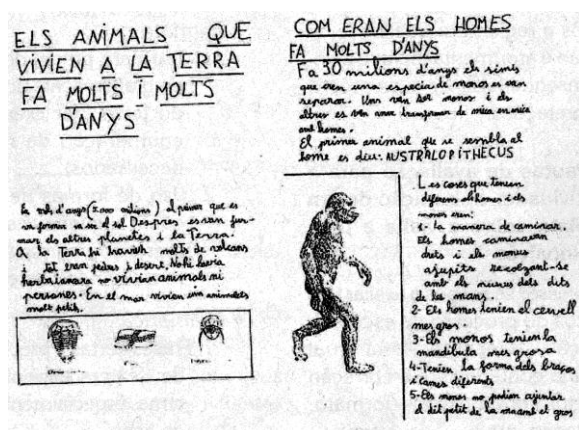 ELS ANIMALS QUE
VIVIEN A LA TERRA
FA MOLTS I MOLTS
D'ANYS
Fa mols d'anys (2.000 milions) el primer que es
va formar va ser el sol. Despres es van for-
mar els altres planetes i la Terra.
A la Terra hi havien molts de volcans
i tot eran pedras i desert, No hi havia
herba i encara no vivian animals ni
persones. En el mar vivien uns animalets
molt petits.
COM ERAN ELS HOMES
FA MOLTS D'ANYS
Fa 30 milions d'anys els simis
que eren una especia de monos es van
separar. Uns van ser monos i els
altres es van anar transformar de mica en mica
amb homes.
El primer animal que se sembla al
home es deu: AUSTRALOPITHECUS
Les coses que tenien
diferens els homes i els
monos eren:
1- la manera de caminar.
Els homes caminaven
drets i els monus
ajupits recolzant-se
amb els nusus dels dits
de les mans.
2- Els homes tenien el cervell
mes gros.
3- Els monos tenien la
mandibula mes grosa
4- Tenien la forma dels braços
i cames diferents
5- Els mones no podien ajuntar
el dit petit de la ma amb el gros